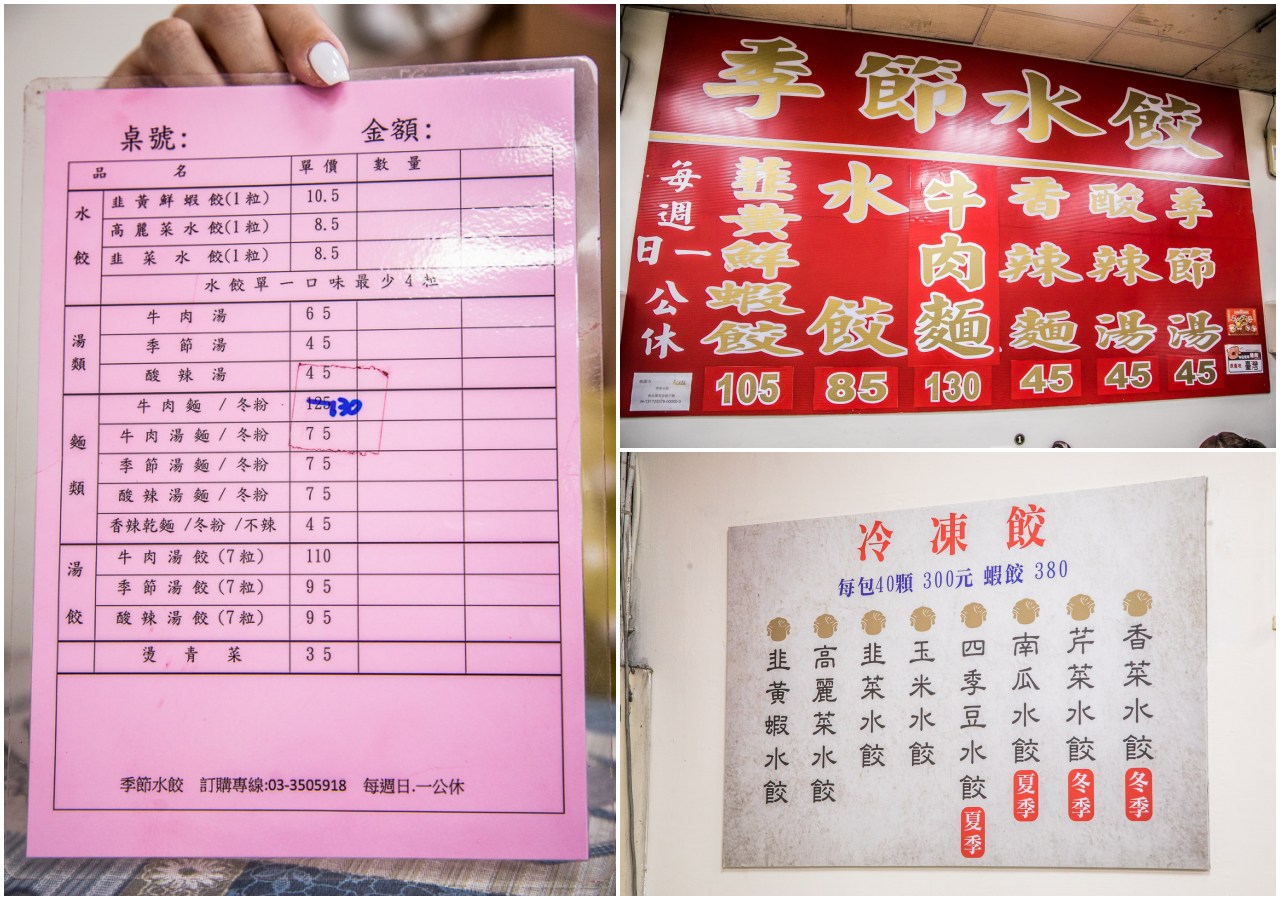 桌號: 金額:
品名 單價 數量
水餃
韭黃鮮蝦餃(1粒) 10.5
高麗菜水餃(1粒) 8.5
韭菜水餃(1粒) 8.5
水餃單一口味最少4粒
湯類
牛肉湯 65
季節湯 45
酸辣湯 45
麵類
牛肉麵/冬粉 125 130
牛肉湯麵/冬粉 75
季節湯麵/冬粉 75
酸辣湯麵/冬粉 75
香辣乾麵/冬粉/不辣 45
湯餃
牛肉湯餃(7粒) 110
季節湯餃(7粒) 95
酸辣湯餃(7粒) 95
燙青菜 35
季節水餃 訂購專線:03-3505918 每週日.一公休
季節水餃
每週日一公休
韭黃鮮蝦餃 105
水餃 85
牛肉麵 130
香辣麵 45
酸辣湯 45
季節湯 45
臺灣
冷凍餃
每包40顆 300元 蝦餃 380
韭黃蝦水餃
高麗菜水餃
韭菜水餃
玉米水餃
四季豆水餃 夏季
南瓜水餃 夏季
芹菜水餃 冬季
香菜水餃 冬季